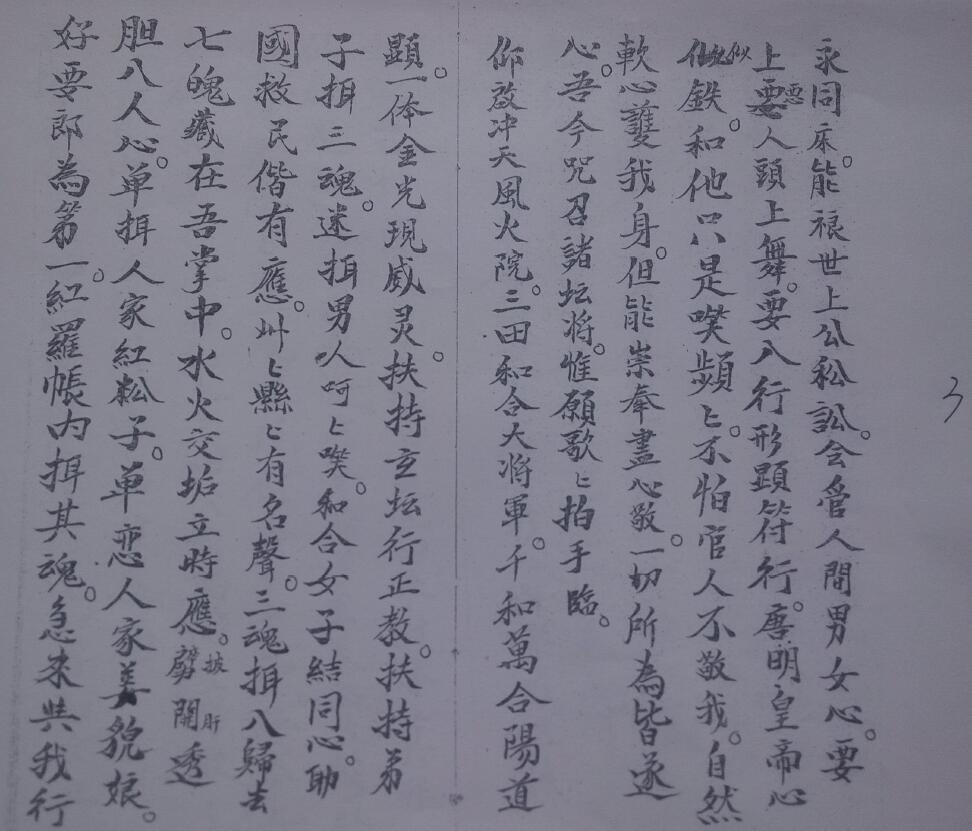 永同床。能褪世上公私訟。会管人間男女心。要
上要惡人頭上舞。要入行形顕符行。唐明皇帝心
似鉄。和他只是笑顔〻。不怕官人不敬我。自然
軟心護我身。但能崇奉盡心敬。一切所為皆遂
心。吾今咒召諸坛将。惟願歌〻拍手臨。
仰啟冲天風火院。三田和合大将軍。千和萬合陽道
顕。一体金光現威灵。扶持立坛行正教。扶持弟
子揖三魂。迷揖男人呵〻笑。和合女子結同心。助
國救民偕有應。州〻縣〻有名聲。三魂揖八歸去
七魄藏在吾掌中。水火交垢立時應。劈披開肝透
胆八人心。单揖人家紅粉子。单恋人家美貌娘。
好要郎為第一。紅羅帳内揖其魂。急来共我行
3